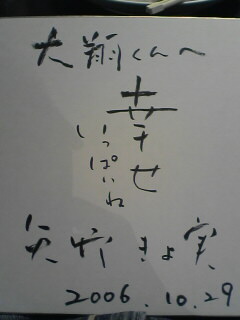 大翔くんへ
幸せ
いっぱいね
矢野きよ実
2006.10.29